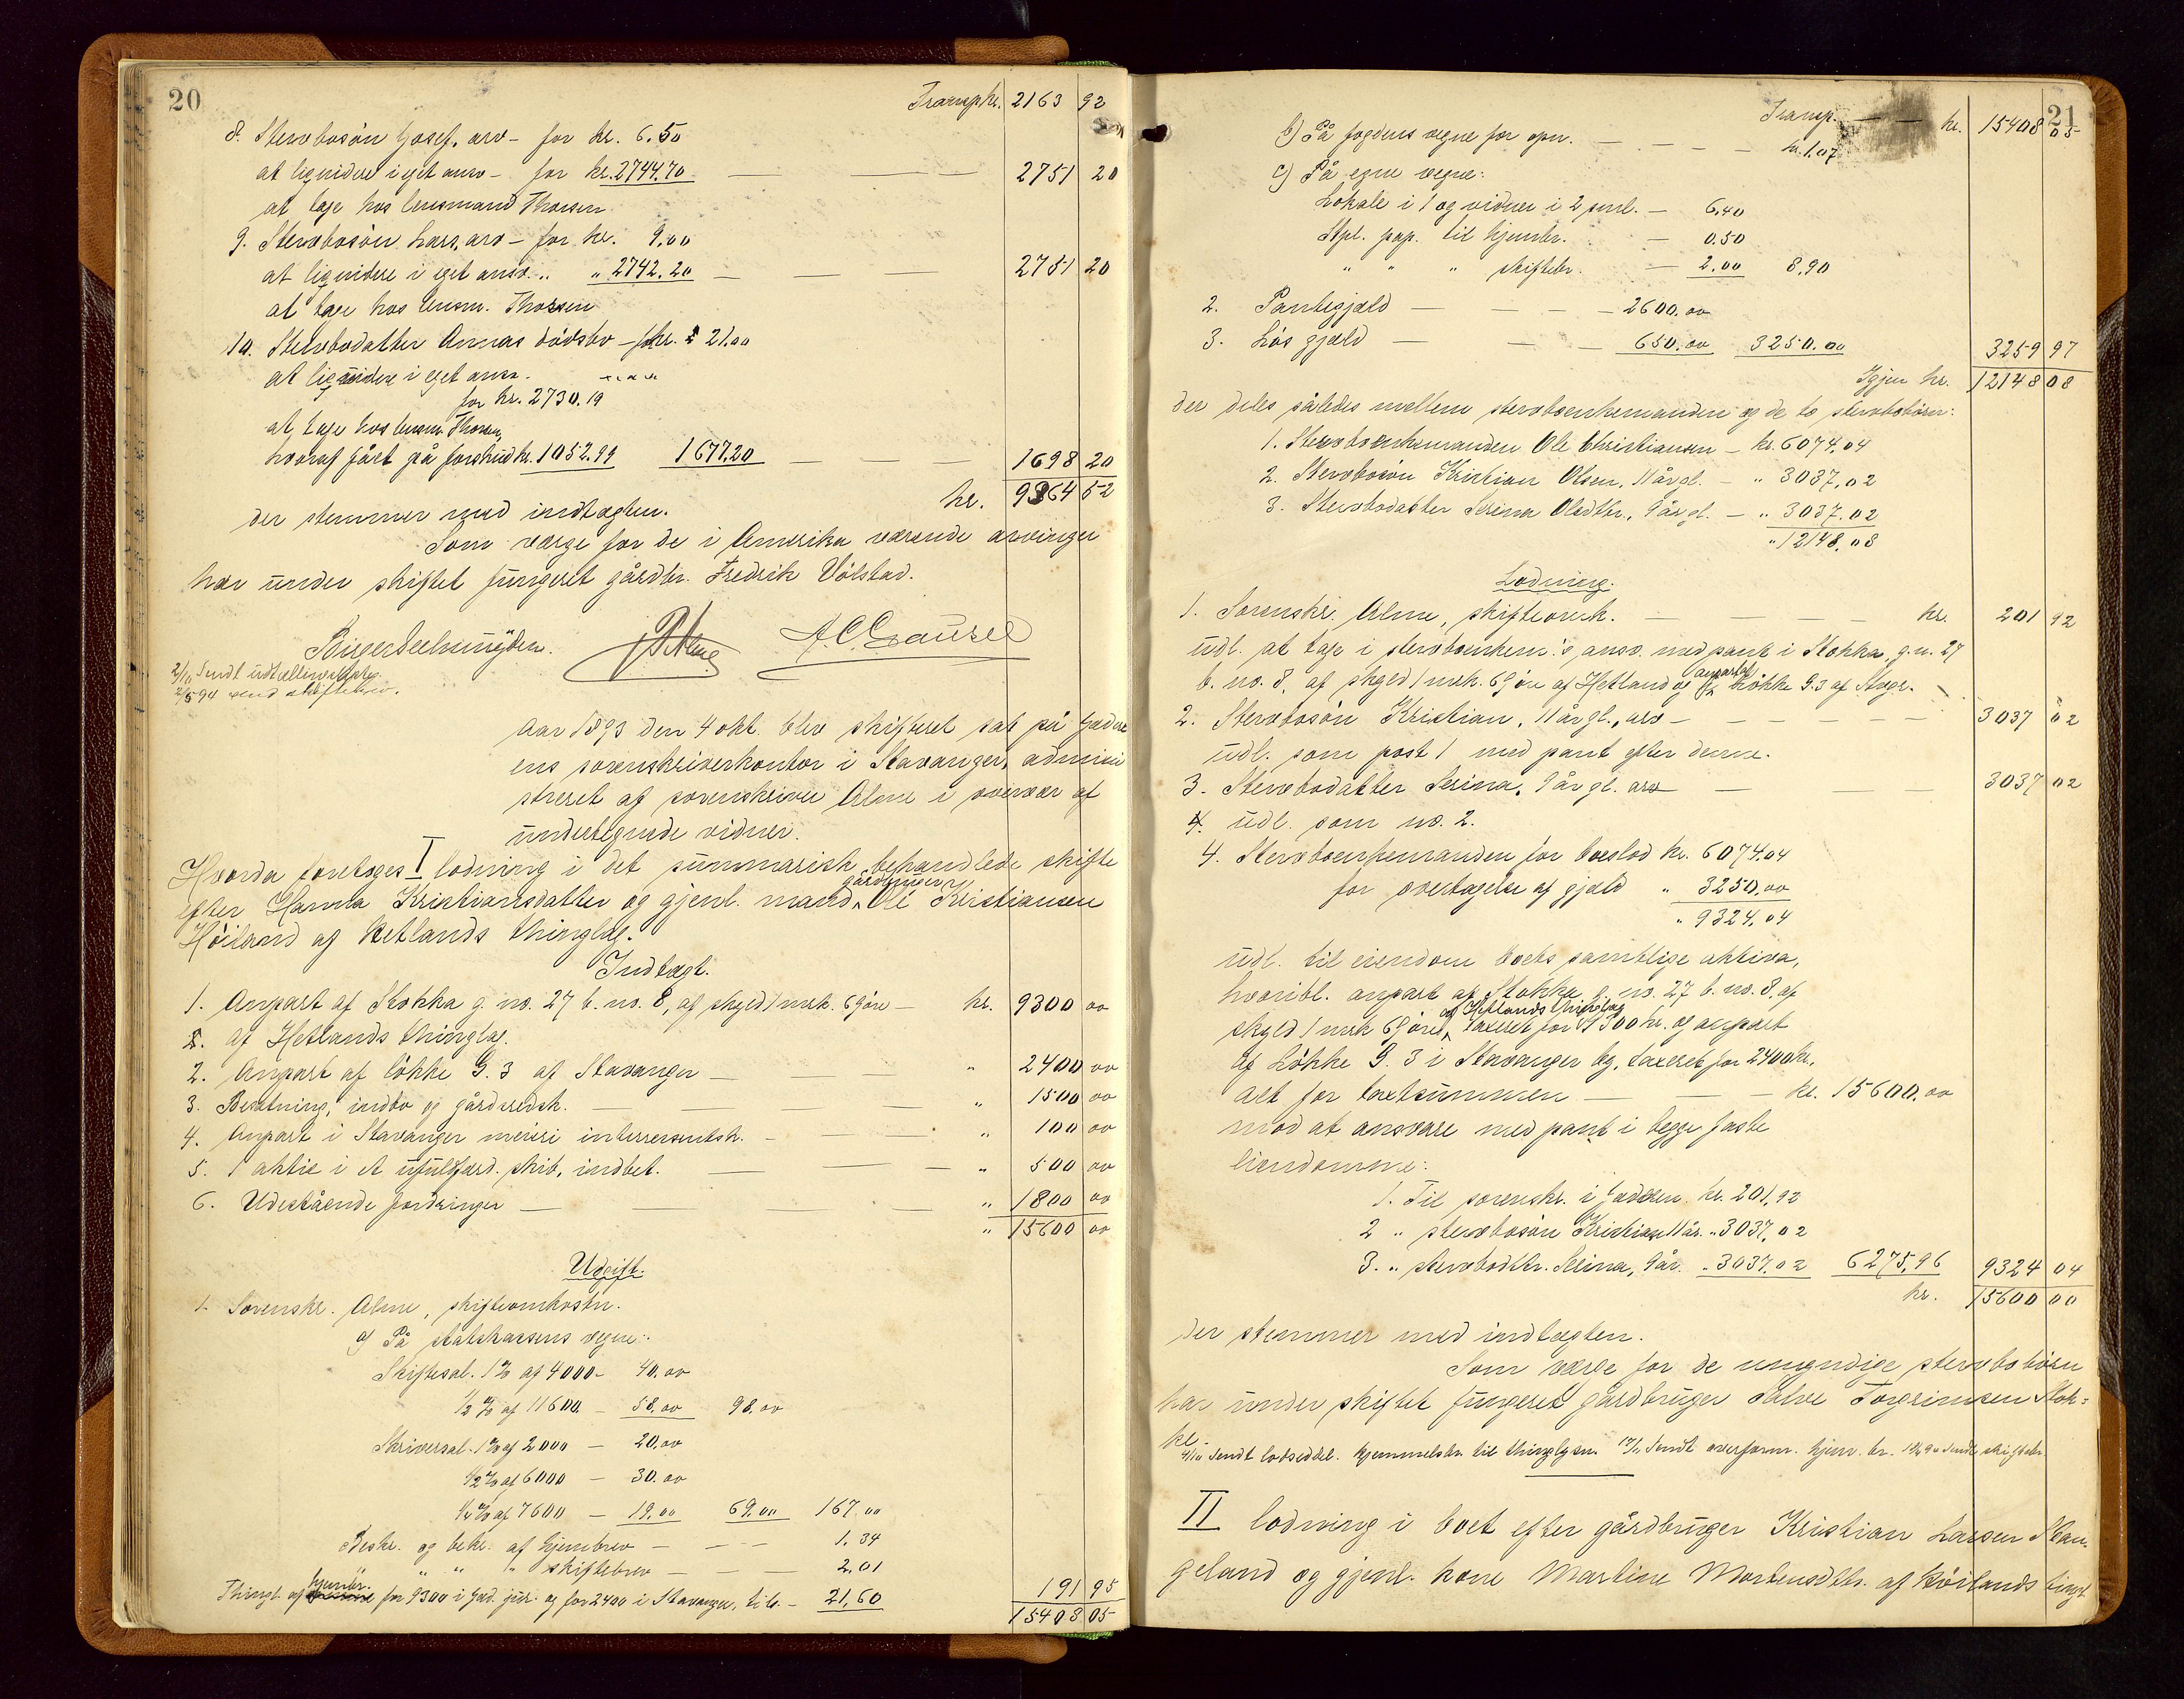 20
Transp kr. 2163 92
8. Stervbosøn Josef, arv - for kr. 6.50
at liqvidere i eget ansv - for kr. 2744.70 — — — 2751 20
at tage hos lensmand Thorsen
9. Stervbosøn Lars, arv - for kr. 9.00
at liqvidere i eget ansv. „ „ 2742.20 — — — 2751 20
at tage hos lensm. Thorsen
10. Stervbodatter Annas dødsbo - f kr. 21.00
at liqvidere i eget ansv.
for kr. 2730.19
at tage hos lensm. Thorsen,
hvoraf ført på forskud kr. 1052.99 1677.20 — — — 1698 20
kr. 9364 52
der stemmer med indtægten.
Som værge for de i Amerika værende arvinger
har under skiftet fungeret gårdbr. Fredrik Vølstad.
2/10 Sendt
2/5 94 send skiftebrev.
Aar 1893 den 4 okt. blev skifteret sat på Jæder
ens sorenskriverkontor i Stavanger, admini
streret af sorenskriver Alme i overvær af
undertegnede vidner.
Hvorda foretoges I lodning i det summarisk behandlede skifte
efter Hanna Kristiansdatter og gjenl. mand, gårdbruger Ole Kristiansen
Høiland af Hetlands thinglag.
Indtægt.
1. Anpart af Stokka g. no. 27 b. no. 8, af skyld 1 mrk. 69 øre — kr. 9300 00
2. af Hetlands thinglag.
2. Anpart af løkke G. 3 af Stavanger — — — „ 2400 00
3. Besætning, indbo og gårdsredsk. — — — „ 1500 00
4. Anpart i Stavanger meieri interressentsk. — — „ 100 00
5. 1 aktie i et skib, indbet. — — — „ 500 00
6. Udestående fordringer — — — „ 1800 00
„ 15600 00
Udgift.
1. Sorenskr. Alme, skifteomkostn.
a) På statskassens vegne:
Skiftesal. 1 % af 4000 - 40.00
1/2 % af 11600 — 58.00 98.00
Skriversal. 1 % af 2000 — 20.00
1/2 % af 6000 — 30.00
1/4 % af 7600 — 19.00 69.00 167.00
Beskr. og bekr. af hjembrev — — — 1.34
„ „ „ „ skiftebrev — — — 2.01
Thingl. af hjembr. for 9300 i Jæd. jur. og for 2400 i Stavanger, — 21.60 191 95
15408 05
21
Transp. — — kr. 15408 05
b) På fogdens vegne for opn. — — — — kr. 1.07
c) På egne vegne:
Lokale i 1 og vidner i 2 saml. — 6.40
Stpl. pap. til hjembr. — 0.50
„ „ „ skiftebr. — 2.00 8.90
2. Pantegjæld — — — — 2600.00
3. Løs gjæld — — — 650.00 3250.00 3259 97
Igjen kr. 12148 08
der deles således mellem stervboenkemanden og de to stervbobørn:
1. Stervboenkemanden Ole Christiansen — kr. 6074.04
2. Stervbosøn Kristian Olsen, 11 år gl. — „ 3037.02
3. Stervbodatter Serina Olsdtr, 9 år gl. — „ 3037.02
„ 12148.08
Lodning.
1. Sorenskr. Alme, skifteomk. — — — — kr. 201 92
udl. at tage i stervboenkem.'s ansv. med pant i Stokka, g. n. 27
b. no. 8, af skyld 1 mrk. 69 øre af Hetland og anpart løkke G. 3 af Stvgr.
2. Stervbosøn Kristian, 11 år gl., arv — — — — — 3037 02
udl. som post 1 med pant efter denne.
3. Stervbodatter Serina, 9 år gl. arv — — — 3037 02
4. udl. som no. 2.
4. Stervboenkemanden for boeslod kr. 6074.04
for overtagelse af gjæld „ 3250.00
„ 9324.04
udl. til eiendom boets samtlige aktiva,
hvoribl. anpart af Stokka g. no. 27 b. no. 8, af
skyld 1 mrk 69 øre, af Hetlands thinglag taxeret for 9300 kr. og anpart
af Løkke G. 3 i Stavanger by, taxeret for 2400 kr.,
alt for taxtsummen — — — kr. 15600.00
mod at ansvare med pant i begge faste
eiendomme:
1. Til sorenskr. i Jæderen kr. 201.92
2 „ stervbosøn Kristian 11 år. „ 3037.02
3. „ stervbodtr. Serina, 9 år. „ 3037.02 6275.96 9324 04
kr. 15600 00
der stemmer med indtægten.
Som værge for de umyndige stervbobørn
har under skiftet fungeret gårdbruger Salve Torgrimsen Stok=
ke.
4/10 Sendt lodseddel. Hjemmelsbr. til thinglysn. Sendt overform. hjem. br. sendt skiftebr.
II lodning i boet efter gårdbruger Kristian Larsen Skan-
geland og gjenl. kone Martine Mortensdtr. af Høilands tingl.